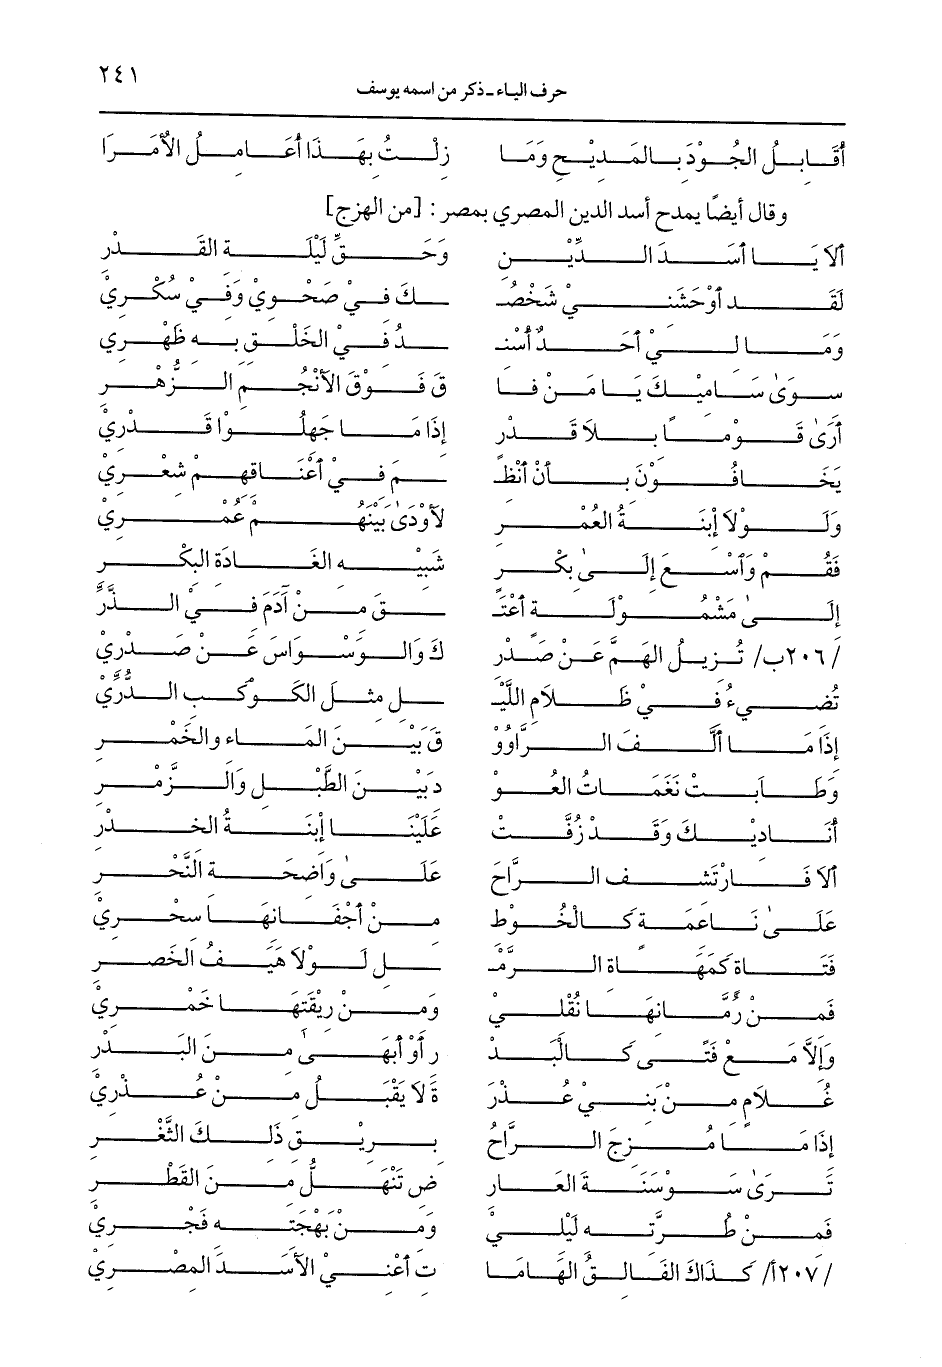 ٢٤١
حرف الياء - ذكر من اسمه يوسف
أُقَابِلُ الجُوْدَ بِالمَدِيْحِ وَمَا زِلْتُ بِهَذَا أُعَامِلُ الأُمَرَا
وقال أيضًا يمدح أسد الدين المصري بمصر: [من الهزج]
ألَا يَا أسَدَ الدِّيْنِ وَحَقِّ لَيْلَةِ القَدْرِ
لَقَد أوْحَشَنِيْ شَخْصُـ ـكَ فِيْ صَحْوِيْ وَفِيْ سُكْرِيْ
وَمَا لِيْ أحَدٌ أُسْنِـ ـدُ فِيْ الخَلْقِ بِهِ ظَهْرِي
سِوَىٰ سَامِيْكَ يَا مَنْ فَا قَ فَوْقَ الأنْجُمِ الزُّهْرِ
أرَىٰ قَوْمًا بِلَا قَدْرٍ إذَا مَا جَهِلُوْا قَدْرِيْ
يَخَافُوْنَ بِأنْ أنْظِـ ـمَ فِيْ أعْنَاقِهِمْ شِعْرِيْ
وَلَوْلَا إبْنَةُ العُمْرِ لَأوْدَىٰ بَيْنَهُمْ عُمْرِيْ
فَقُمْ وَآسْعَ إلَىٰ بِكْرٍ شَبِيْهِ الغَادَةِ البِكْرِ
إلَىٰ مَشْمُوْلَةٍ أعْتَـ ـقَ مِنْ آدَمَ فِي الذَّرِّ
/٢٠٦ب/ تُزِيلُ الهَمَّ عَنْ صَدْرِ كَ وَالوَسْوَاسَ عَنْ صَدْرِيْ
تُضِيءُ فِيْ ظَلَامِ اللَّيْـ ـلِ مِثْلَ الكَوْكَبِ الدُّرِّيْ
إذَا مَا ألَّفَ الرَّاوُوْ قَ بَيْنَ المَاءِ والخَمْرِ
وَطَابَتْ نَغَمَاتُ العُوْ دِ بَيْنَ الطَّبْلِ وَالزَّمْرِ
أنَادِيْكَ وَقَدْ زُفَّتْ عَلَيْنَا إبْنَةُ الخِدْرِ
ألَا فَارْتَشِفِ الرَّاحَ عَلَىٰ وَاضِحَةِ النَّحْرِ
عَلَىٰ نَاعِمَةٍ كَالْخُوْطِ مِنْ أجْفَانِهَا سِحْرِيْ
فَتَاةٍ كَمَهَاةِ الرَّمْـ ـلِ لَوْلَا هَيَفُ الخَصْرِ
فَمِنْ رُمَّانِهَا نُقْلِيْ وَمِنْ رِيْقَتِهَا خَمْرِيْ
وَإلَّا مَعْ فَتًى كَالْبَدْ رِ أوْ أبْهَىٰ مِنَ البَدْرِ
غُلَامٍ مِنْ بَنِيْ عُذْرَ ةَ لَا يَقْبَلُ مِنْ عُذْرِيْ
إذَا مَا مُزِجَ الرَّاحُ بِرِيْقِ ذَلِكَ الثَّغْرِ
تَرَىٰ سَوْسَنَةَ العَارِ ضِ تَنْهَلُّ مِنَ القَطْرِ
فَمِنْ طُرَّتِهِ لَيْلِيْ وَمِنْ بَهْجَتِهِ فَجْرِيْ
/٢٠٧أ/ كَذَاكَ الفَالِقُ الهَامَا تِ أعْنِيْ الأسَدَ المِصْرِيْ